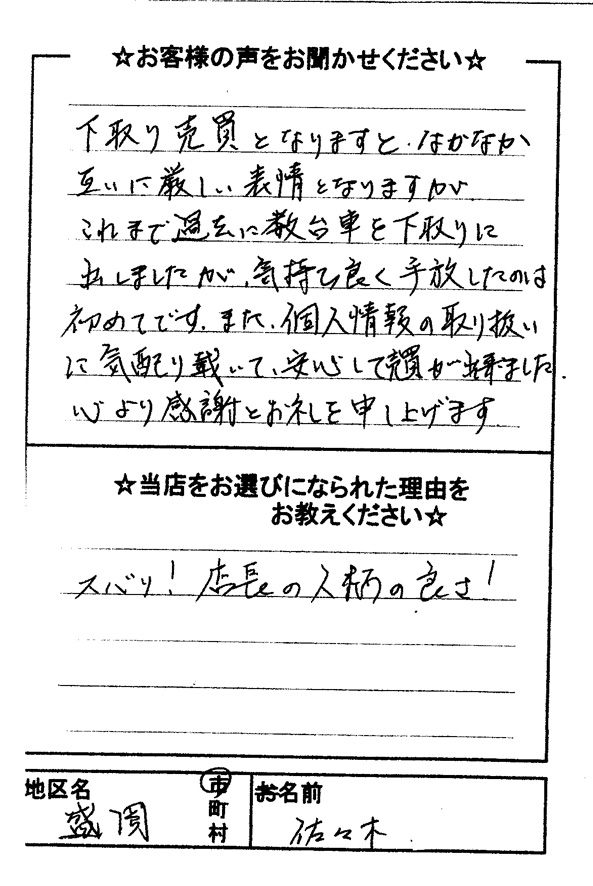 ☆お客様の声をお聞かせください☆
下取り売買となりますと、はかなか
互いに厳しい表情となりますが
これまで過去に数台車を下取りに
出しましたが、気持ち良く手放したのは
初めてです。また、個人情報の取り扱い
に気配り戴いて、安心して売買が出来ました。
心より感謝とお礼を申し上げます
☆当店をお選びになられた理由を
お教えください☆
ズバリ！店長の人柄の良さ！
地区名
盛岡
市
町
村
お名前
佐々木